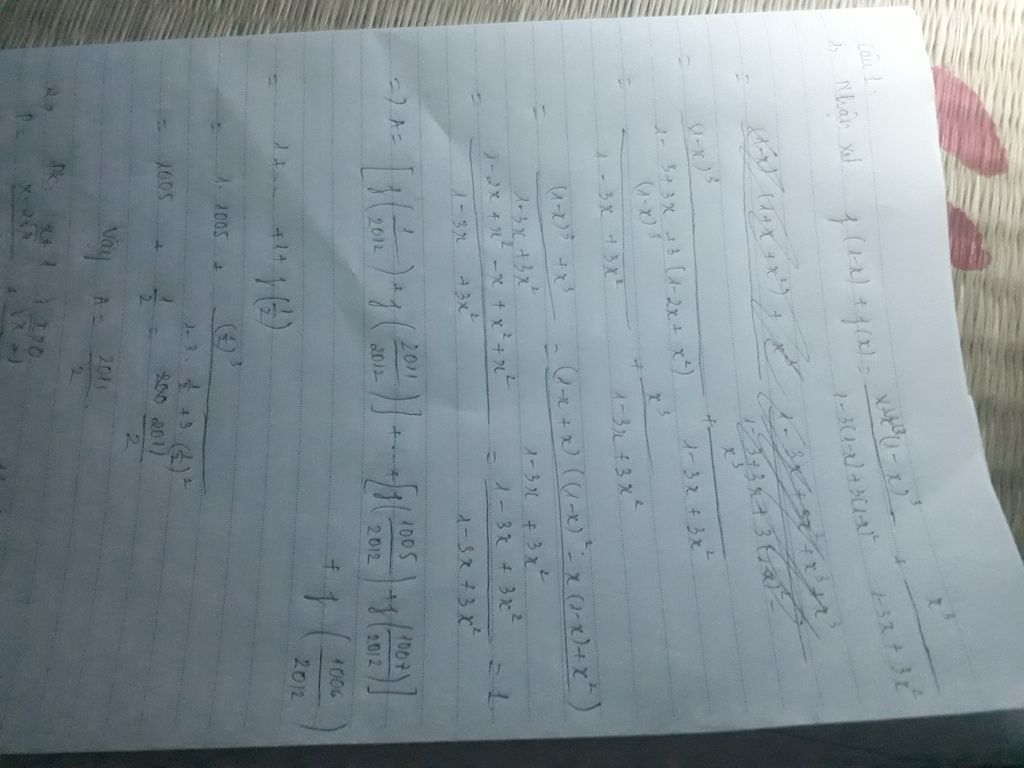 Câu 1.
1, Nhận xét f(1-x) + f(x) = (1-x)³ / (1-3(1-x)+3(1-x)²) + x³ / (1-3x+3x²)
= (1-x)³ / (1-3+3x+3(1-2x+x²)) + x³ / (1-3x+3x²)
= (1-x)³ / (1-3x+3x²) + x³ / (1-3x+3x²)
= ((1-x)³+x³) / (1-3x+3x²) = (1-x+x)((1-x)²-x(1-x)+x²) / (1-3x+3x²)
= (1-2x+x²-x+x²+x²) / (1-3x+3x²) = (1-3x+3x²) / (1-3x+3x²) = 1
=> A = [f(1/2012) + f(2011/2012)] + ... + [f(1005/2012) + f(1007/2012)]
+ f(1006/2012)
= 1+... +1+ f(1/2)
= 1.1005 + (1/2)³ / (1-3.1/2+3(1/2)²)
= 1005 + 1/2 = 2011/2
Vậy A = 2011/2
2,